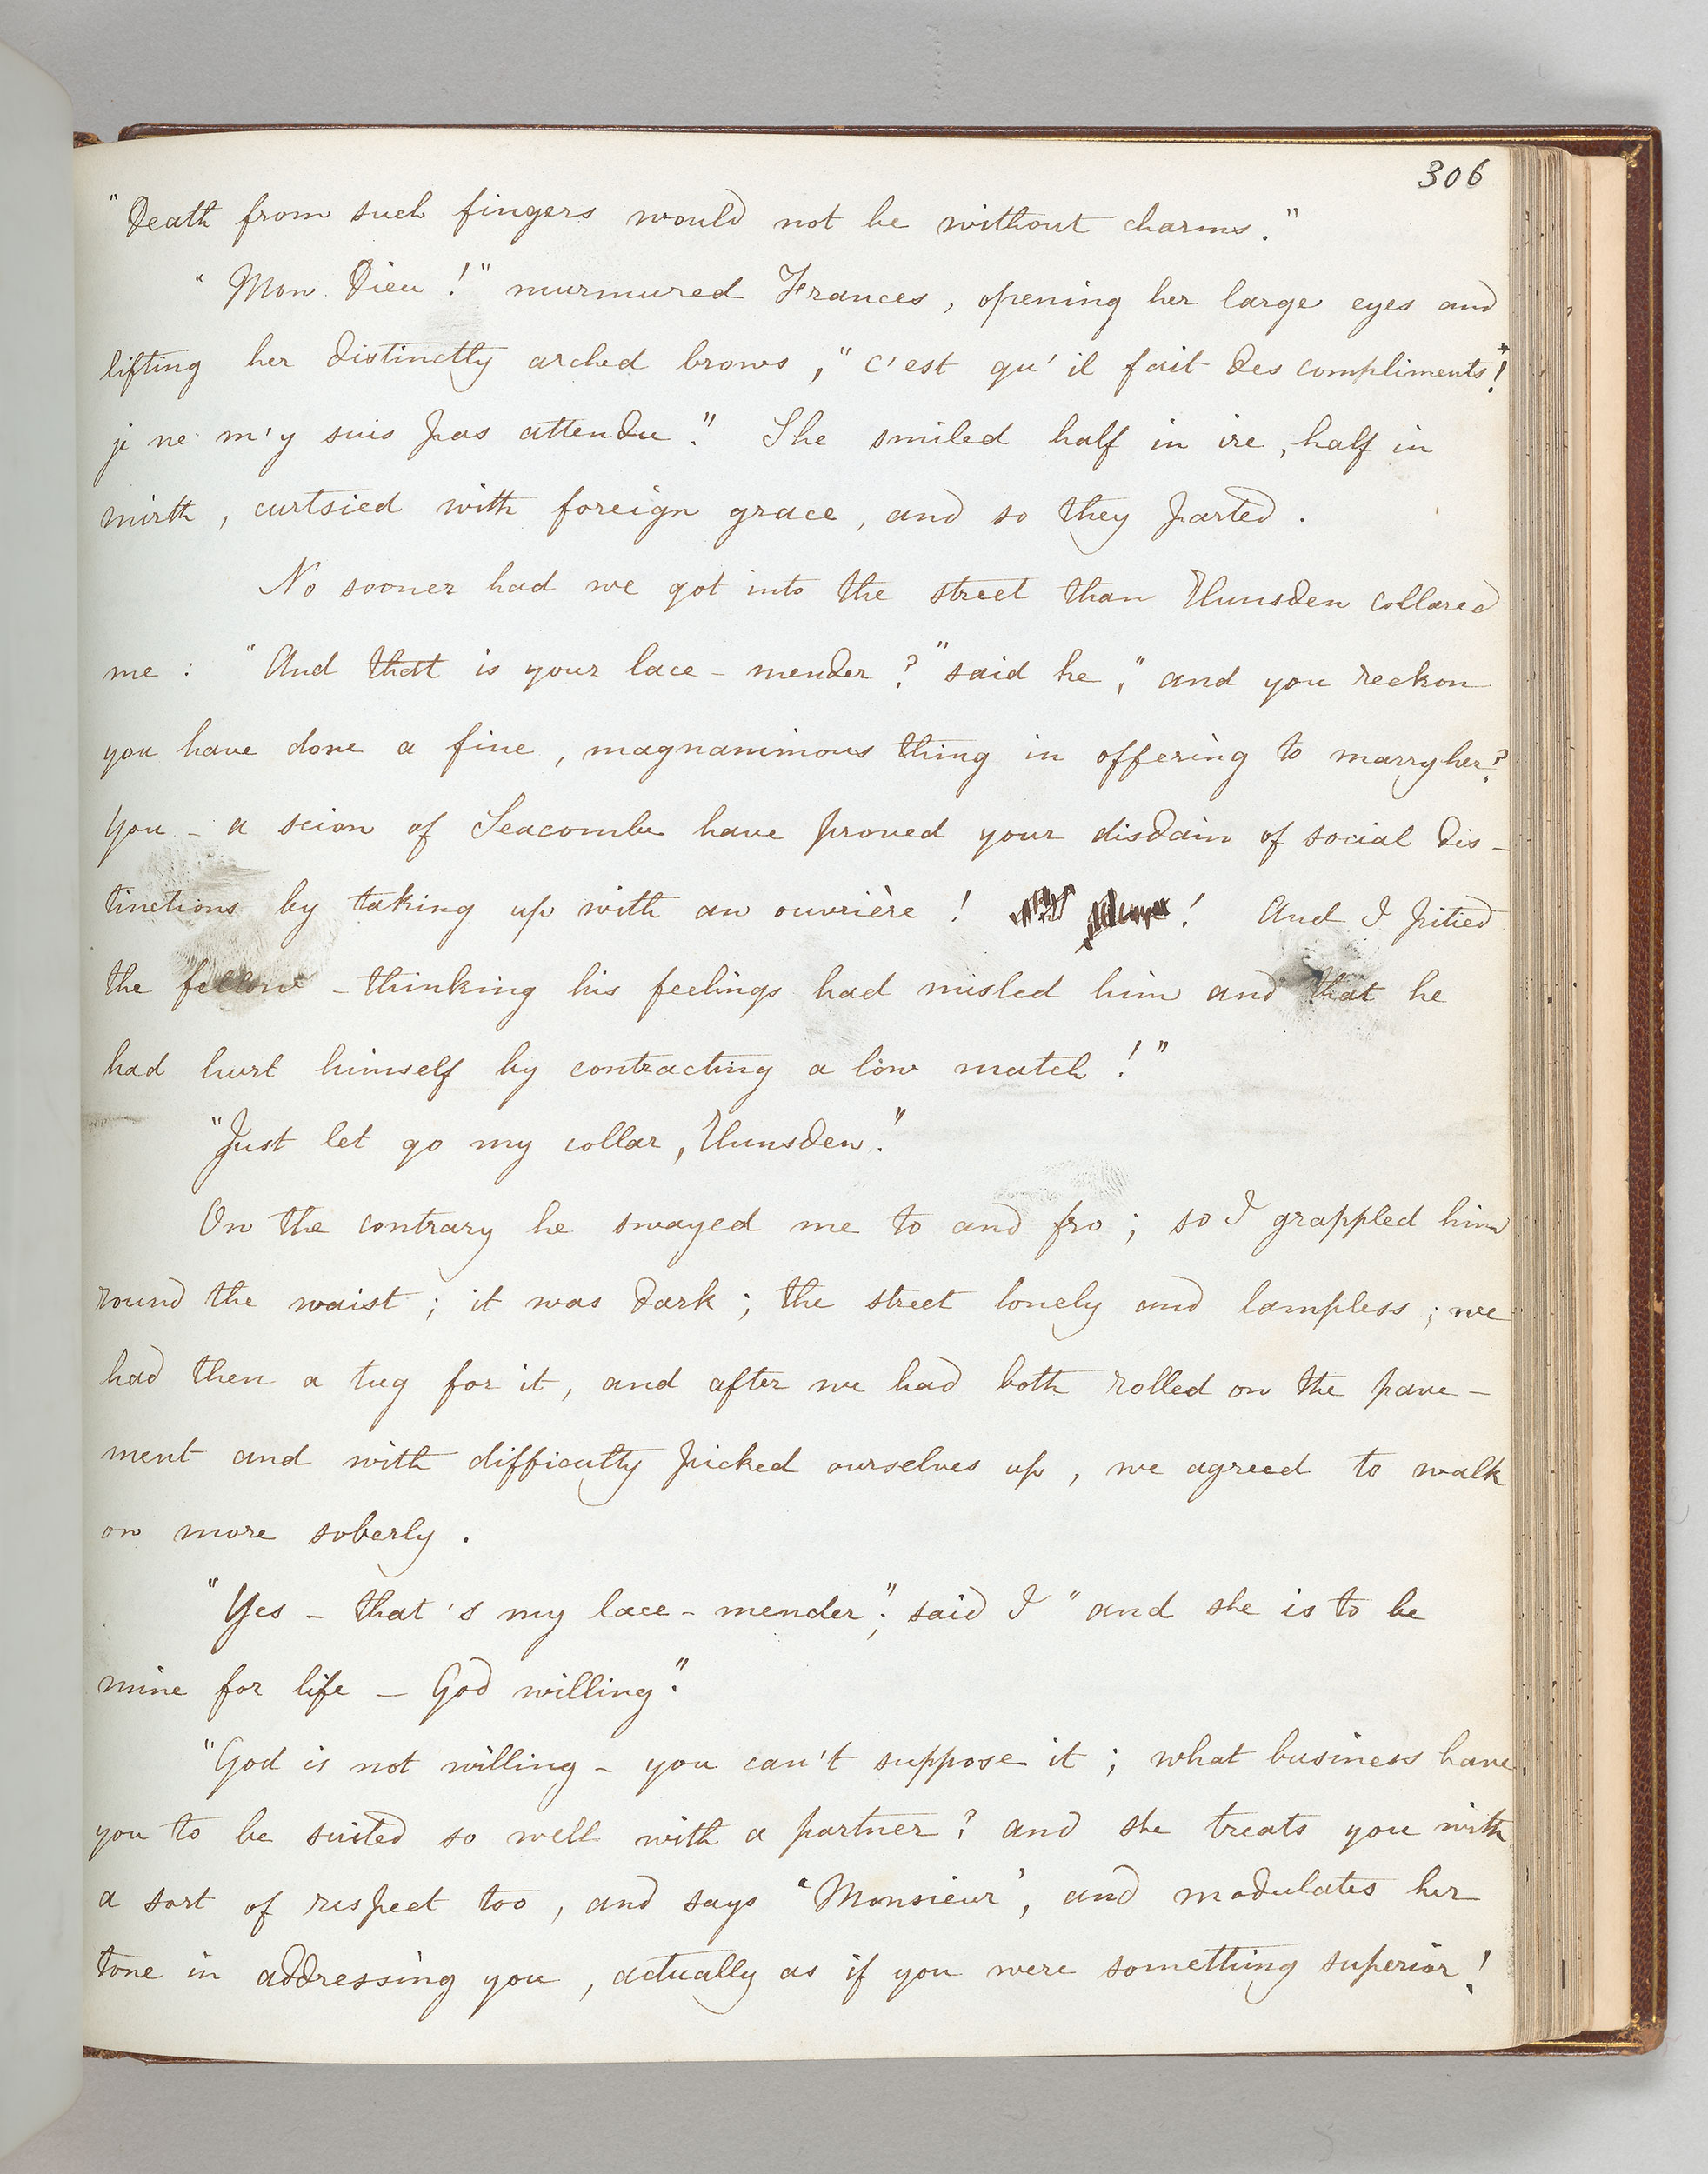 306
"Death from such fingers would not be without charms."
"Mon Dieu!" murmured Frances, opening her large eyes and
lifting her distinctly arched brows, "c'est qu'il fait des compliments!
je ne m'y suis pas attendu." She smiled half in ire, half in
mirth, curtsied with foreign grace, and so they parted.
No sooner had we got into the street than Hunsden collared
me: "And that is your lace-mender?" said he, "and you reckon
you have done a fine, magnanimous thing in offering to marry her?
You - a scion of Seacombe have proved your disdain of social dis-
tinctions by taking up with an ouvrière! ! And I pitied
the fellow - thinking his feelings had misled him and that he
had hurt himself by contracting a low match!"
"Just let go my collar, Hunsden."
On the contrary he swayed me to and fro; so I grappled him
round the waist; it was dark; the street lonely and lampless; we
had then a tug for it, and after we had both rolled on the pave-
ment and with difficulty picked ourselves up, we agreed to walk
on more soberly.
"Yes - that's my lace-mender"; said I "and she is to be
mine for life - God willing."
"God is not willing - you can't suppose it; what business have
you to be suited so well with a partner? and she treats you with
a sort of respect too, and says 'Monsieur', and modulates her
tone in addressing you, actually as if you were something superior!